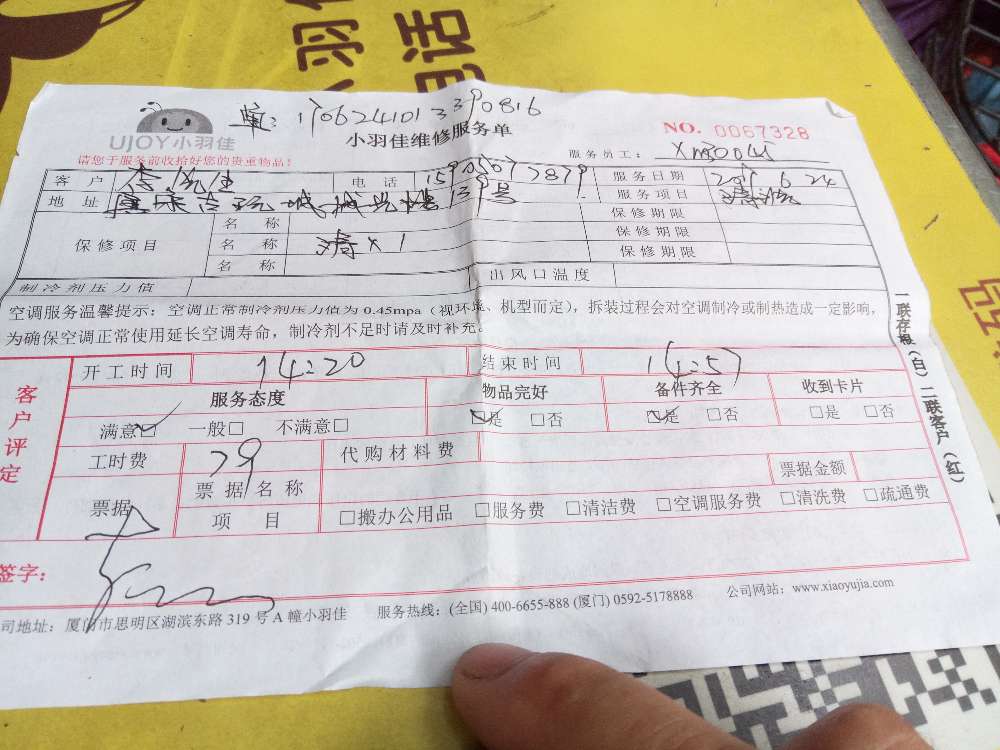 小羽
电话
单:1906241013390816
UJOY小羽佳
小羽佳维修服务单
NO. 0067328
请您于服务前收拾好您的贵重物品!
服务员工:
客户
电话
服务日期 2019.6.24
地址
139号
服务项目 清洗
保修项目
名称
保修期限
名称 清x1
保修期限
名称
保修期限
制冷剂压力值
出风口温度
空调服务温馨提示:空调正常制冷剂压力值为0.45mpa(视环境、机型而定),拆装过程会对空调制冷或制热造成一定影响,
为确保空调正常使用延长空调寿命,制冷剂不足时请及时补充。
一联存根(白)二联客户(红)
客户评定
开工时间 14:20 结束时间 14:57
服务态度 物品完好 备件齐全 收到卡片
满意☑ 一般□ 不满意□ ☑是 □否 ☑是 □否 □是 □否
工时费 79 代购材料费
票据 票据名称 票据金额
项目 □搬办公用品 □服务费 □清洁费 □空调服务费 □清洗费 □疏通费
签字:
司地址:厦门市思明区湖滨东路319号A幢小羽佳 服务热线:(全国)400-6655-888 (厦门)0592-5178888 公司网站:www.xiaoyujia.com